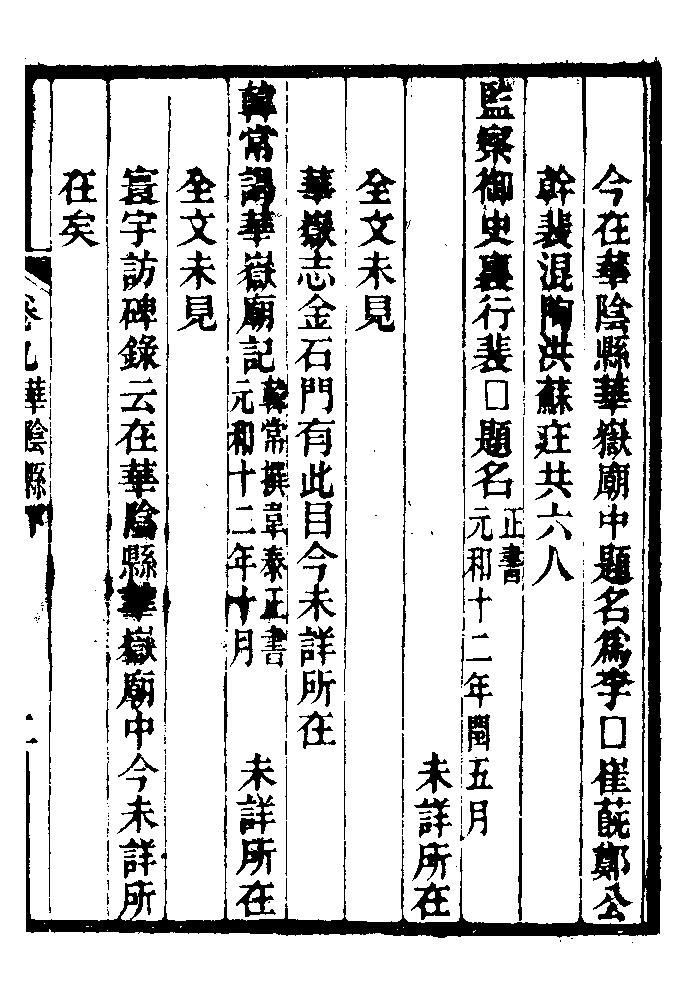 今在華陰縣華嶽廟中題名爲李□崔䕫鄭公
幹裴混陶洪蘇㽵共六人
監察御史裏行裴□題名正書
元和十二年閏五月
未詳所在
全文未見
華嶽志金石門有此目今未詳所在
韓常謁華嶽廟記韓常撰韋泰正書
元和十二年十月
未詳所在
全文未見
寰宇訪碑錄云在華陰縣華嶽廟中今未詳所
在矣
卷九華陰縣